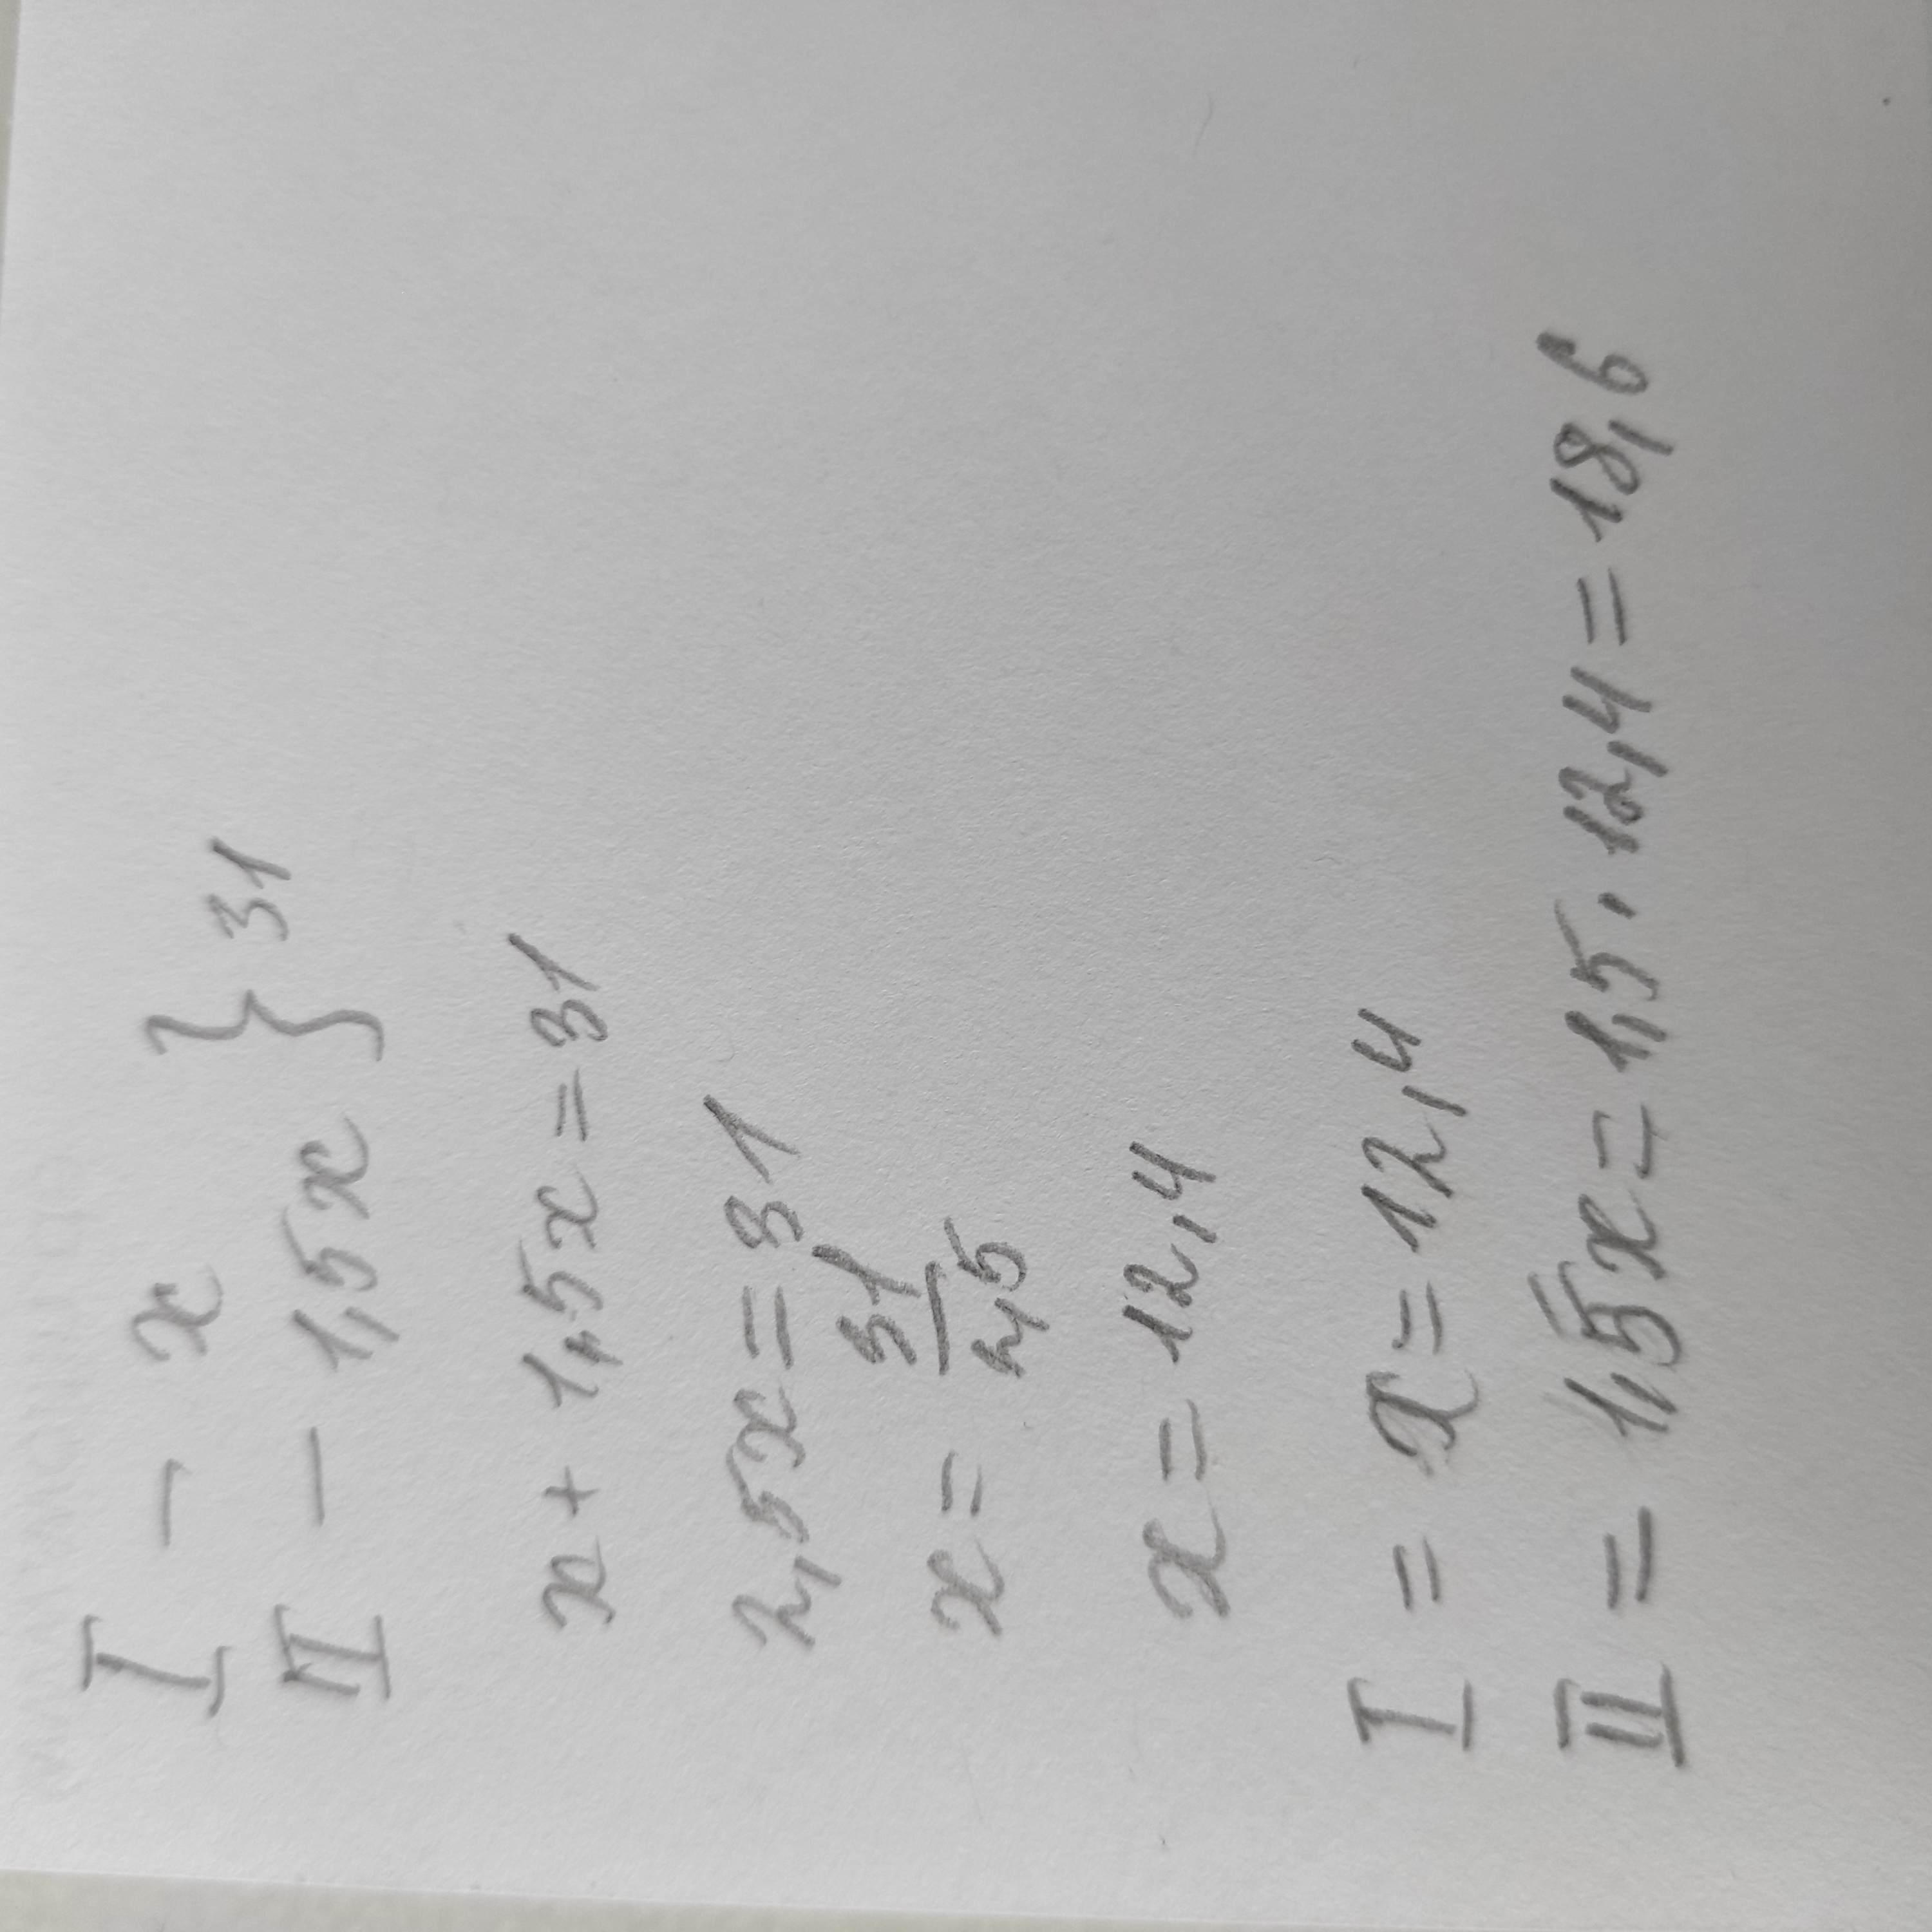 I - x
II - 1,5x } 31
x + 1,5x = 31
2,5x = 31
x = 31/2,5
x = 12,4
I = x = 12,4
II = 1,5x = 1,5 · 12,4 = 18,6